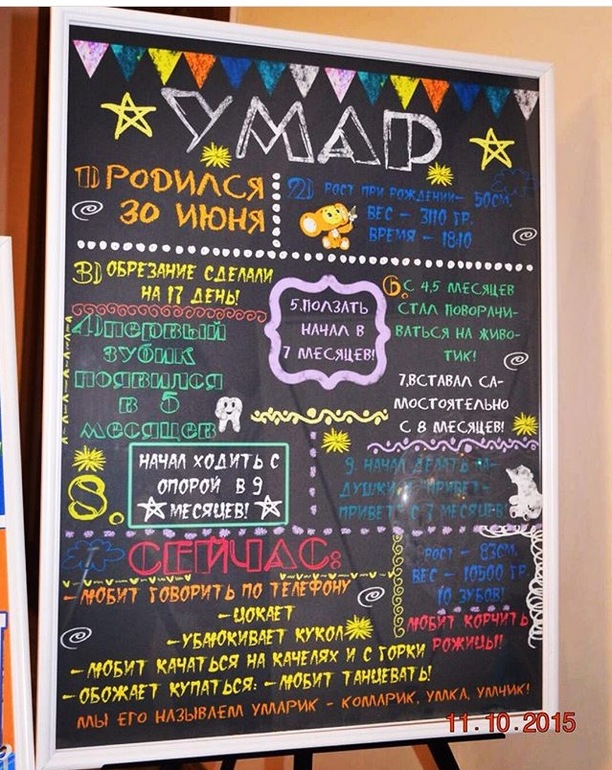 УМАР
1) РОДИЛСЯ
30 ИЮНЯ
2) РОСТ ПРИ РОЖДЕНИИ - 50СМ.
ВЕС - 3110 ГР.
ВРЕМЯ - 18:10
3) ОБРЕЗАНИЕ СДЕЛАЛИ
НА 17 ДЕНЬ!
4) ПЕРВЫЙ
ЗУБИК
ПОЯВИЛСЯ
В 5
МЕСЯЦЕВ
5.ПОЛЗАТЬ
НАЧАЛ В
7 МЕСЯЦЕВ!
6. С 4,5 МЕСЯЦЕВ
СТАЛ ПОВОРАЧИ-
ВАТЬСЯ НА ЖИВО-
ТИК!
7,ВСТАВАЛ СА-
МОСТОЯТЕЛЬНО
С 8 МЕСЯЦЕВ!
8.
НАЧАЛ ХОДИТЬ С
ОПОРОЙ В 9
МЕСЯЦЕВ!
9. НАЧАЛ ДЕЛАТЬ ЛА-
ДУШКИ И ПРИВЕТ-
ПРИВЕТ - С 7 МЕСЯЦЕВ!
СЕЙЧАС:
-ЛЮБИТ ГОВОРИТЬ ПО ТЕЛЕФОНУ
-ЦОКАЕТ
-УБАЮКИВАЕТ КУКОЛ
-ЛЮБИТ КАЧАТЬСЯ НА КАЧЕЛЯХ И С ГОРКИ
-ОБОЖАЕТ КУПАТЬСЯ: -ЛЮБИТ ТАНЦЕВАТЬ!
РОСТ - 83СМ.
ВЕС - 10500 ГР.
10 ЗУБОВ!
ЛЮБИТ КОРЧИТЬ
РОЖИЦЫ!
МЫ ЕГО НАЗЫВАЕМ УМАРИК - КОМАРИК, УМКА, УМЧИК!
11.10.2015